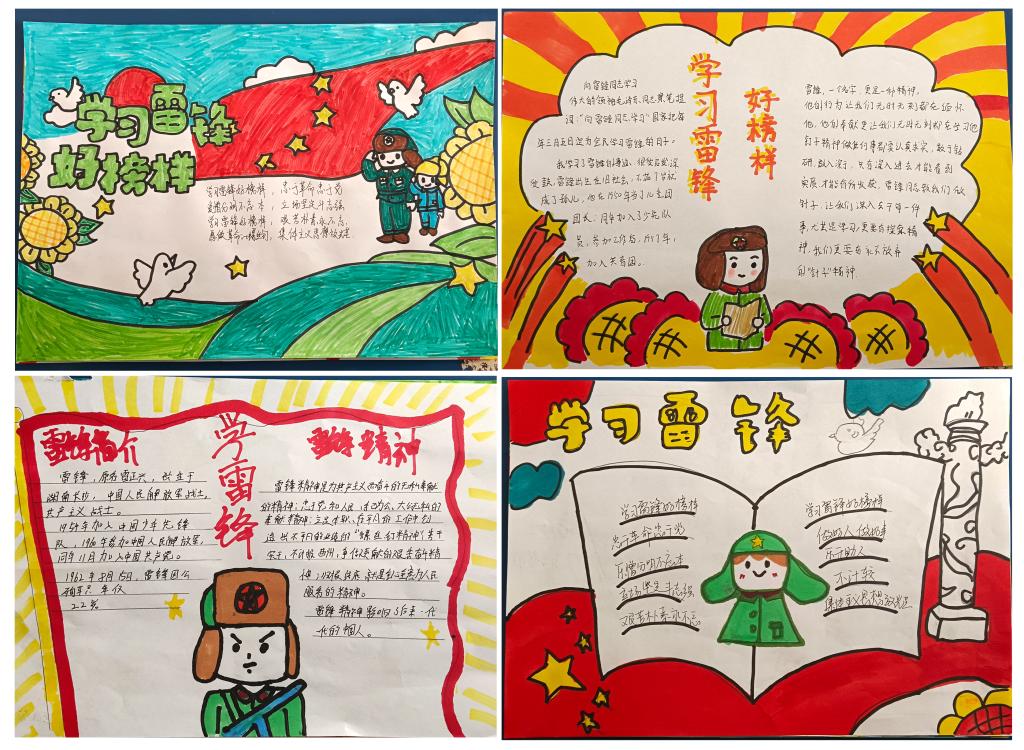 学习雷锋
好榜样
学习雷锋好榜样，忠于革命忠于党
爱憎分明不忘本，立场坚定斗志强
学习雷锋好榜样，艰苦朴素永不忘，
愿做革命一颗螺丝钉，集体主义思想放光芒
学习雷锋
好精样
向雷锋同志学习
伟大的领袖毛泽东同志亲笔提
词："向雷锋同志学习"国家把每
年三月五日定为全民学习雷锋的日子。
我学习了雷锋的事迹，很受感受深
受鼓，雷锋出生在旧社会，不满7岁就
成了孤儿，他在1950年当了儿童团
团长；同年加入了少先队
员，参加工作后，
加入共青团。
雷锋，一个名字，更是一种精神，
他的行为让我们无时无刻都在缅怀
他，他的奉献更让我们无时无刻都在学习他
钉子精神做任何事都要认真求实，敢于钻
研，敢入深了，只有深入进去才能看到
实质，才能有所收获，雷锋同志教我们做
针子，让我们深入去干每一件
事，尤其是学习，更要有探索精
神，我们更要有永不放弃
的"针子"精神.
雷锋简介
学雷锋
雷锋精神
雷锋，原名雷正兴，出生于
湖南长沙，中国人民解放军战士，
共产主义战士。
1954年加入中国少年先锋
队，1960年参加中国人民解放军，
同年11月加入中国共产党。
1962年8月15日，雷锋因公
殉职，年仅
22岁
雷锋精神是为共产主义而奋斗的无私奉献
的精神；忠于党和人民、
奉献精神；立足本职、在平凡的工作中创
造出不平凡业绩的"螺丝钉精神"；苦干
实干、不计报酬、争做贡献的艰苦奋斗精
神；归根结底就是全心全意为人民
服务的精神。
雷锋精神影响了后来一代
一代的中国人。
学习雷锋
学习雷锋好榜样
忠于革命忠于党
爱憎分明不忘本
立场坚定斗志强
艰苦朴素永不忘
学习雷锋好榜样
做好人做好事
乐于助人
不计较
集体主义思想放光芒